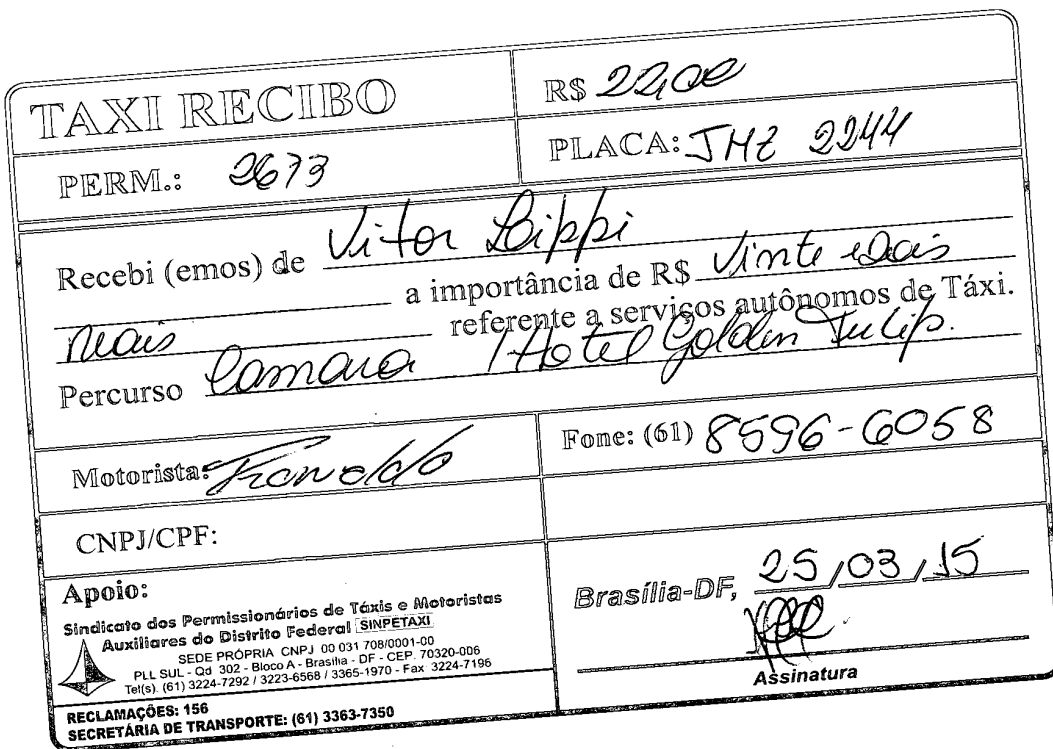 TAXI RECIBO
R$ 22,00
PERM.: 2673
PLACA: JHZ 2244
Recebi (emos) de Vitor Lippi
a importância de R$ Vinte e dois
reais referente a serviços autônomos de Táxi.
Percurso Camara / Hotel Golden Tulip.
Motorista:
Fone: (61) 8596-6058
CNPJ/CPF:
Apoio:
Sindicato dos Permissionários de Táxis e Motoristas
Auxiliares do Distrito Federal SINPETAXI
SEDE PRÓPRIA CNPJ 00 031 708/0001-00
PLL SUL - Qd 302 - Bloco A - Brasília - DF - CEP. 70320-006
Tel(s). (61) 3224-7292 / 3223-6568 / 3365-1970 - Fax 3224-7196
RECLAMAÇÕES: 156
SECRETÁRIA DE TRANSPORTE: (61) 3363-7350
Brasília-DF, 25/03/15
Assinatura